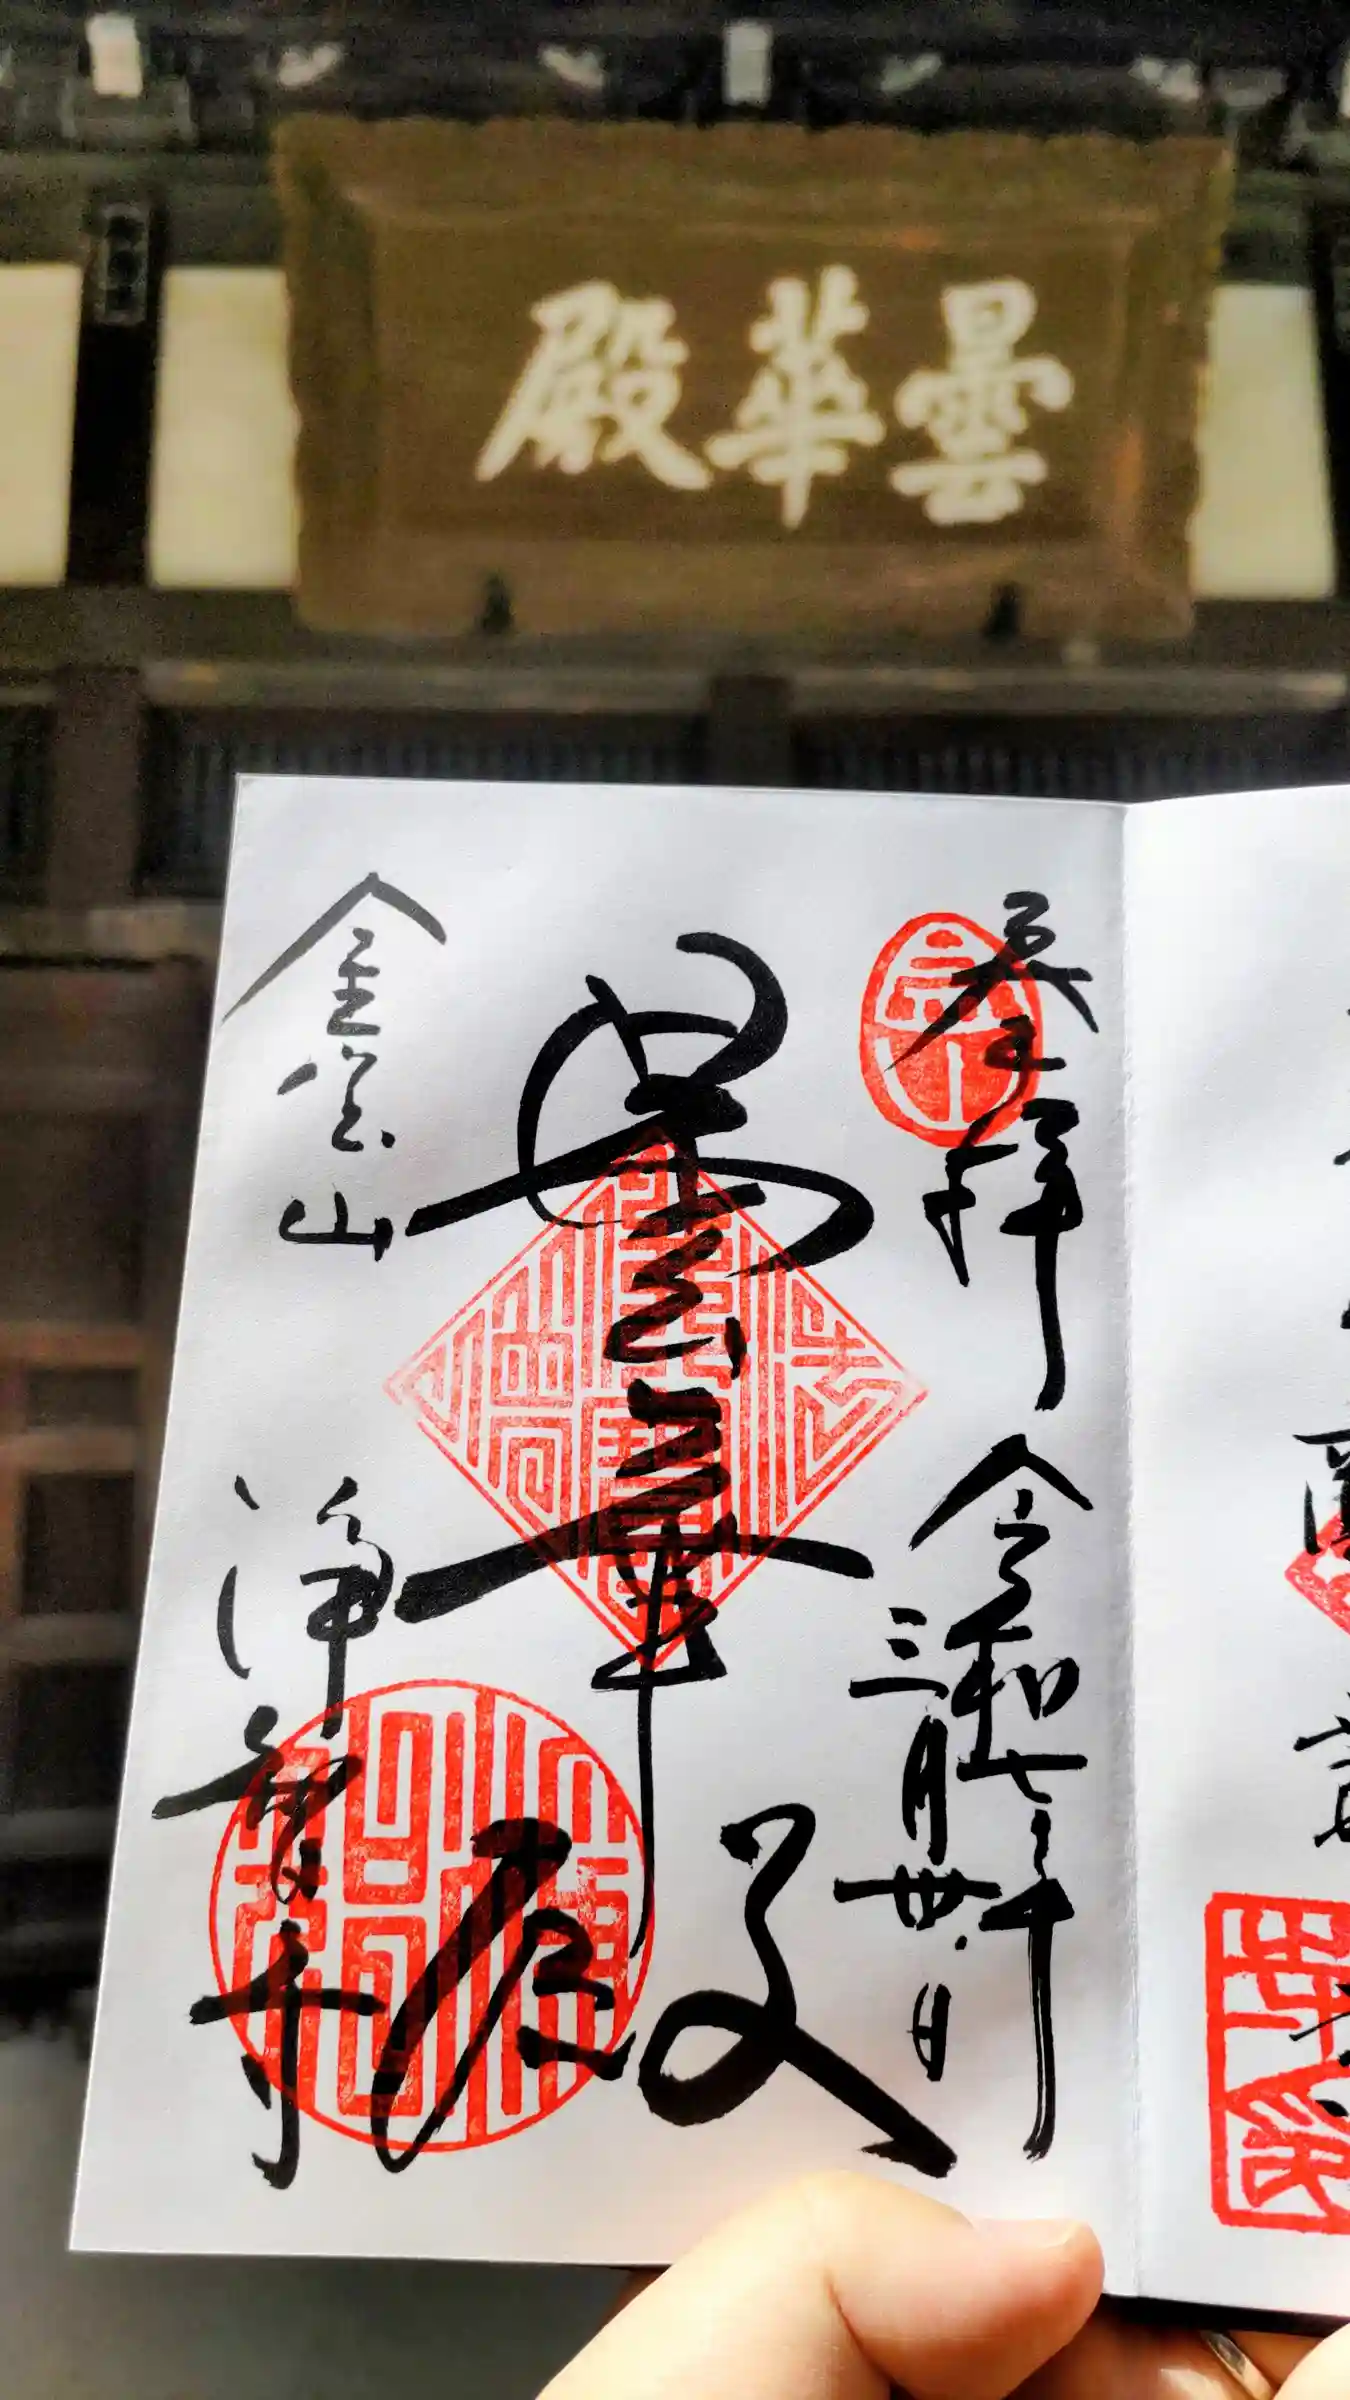 曇華殿
奉拝
令和七年
三月卅日
曇華殿
金宝山
浄智寺